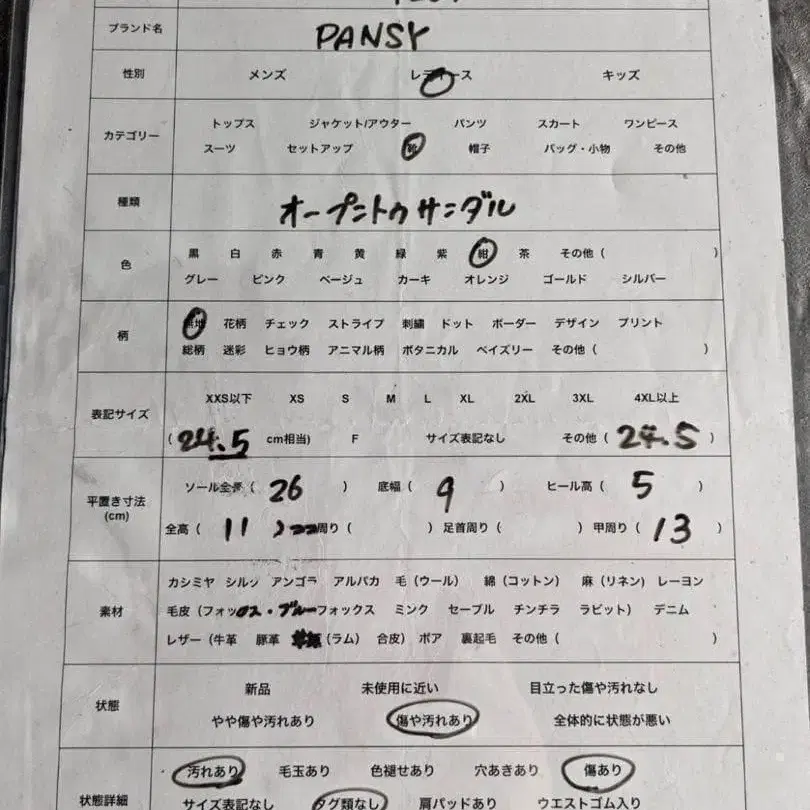 ブランド名 PANSY
性別 メンズ レディース キッズ
カテゴリー トップス ジャケット/アウター パンツ スカート ワンピース
スーツ セットアップ 靴 帽子 バッグ・小物 その他
種類 オープントゥサンダル
色 黒 白 赤 青 黄 緑 紫 紺 茶 その他（ ）
グレー ピンク ベージュ カーキ オレンジ ゴールド シルバー
柄 無地 花柄 チェック ストライプ 刺繍 ドット ボーダー デザイン プリント
総柄 迷彩 ヒョウ柄 アニマル柄 ボタニカル ペイズリー その他（ ）
表記サイズ XXS以下 XS S M L XL 2XL 3XL 4XL以上
（24.5 cm相当) F サイズ表記なし その他（24.5）
平置き寸法 ソール全長（ 26 ） 底幅（ 9 ） ヒール高（ 5 ）
(cm) 全高（ 11 ） 周り（ ）足首周り（ ）甲周り（ 13 ）
素材 カシミヤ シルク アンゴラ アルパカ 毛（ウール） 綿（コットン） 麻（リネン） レーヨン
毛皮（フォックス・ブルーフォックス ミンク セーブル チンチラ ラビット） デニム
レザー（牛革 豚革 （ラム） 合皮） ボア 裏起毛 その他（ ）
状態 新品 未使用に近い 目立った傷や汚れなし
やや傷や汚れあり 傷や汚れあり 全体的に状態が悪い
状態詳細 汚れあり 毛玉あり 色褪せあり 穴あきあり 傷あり
サイズ表記なし タグ類なし 肩パッドあり ウエストゴム入り